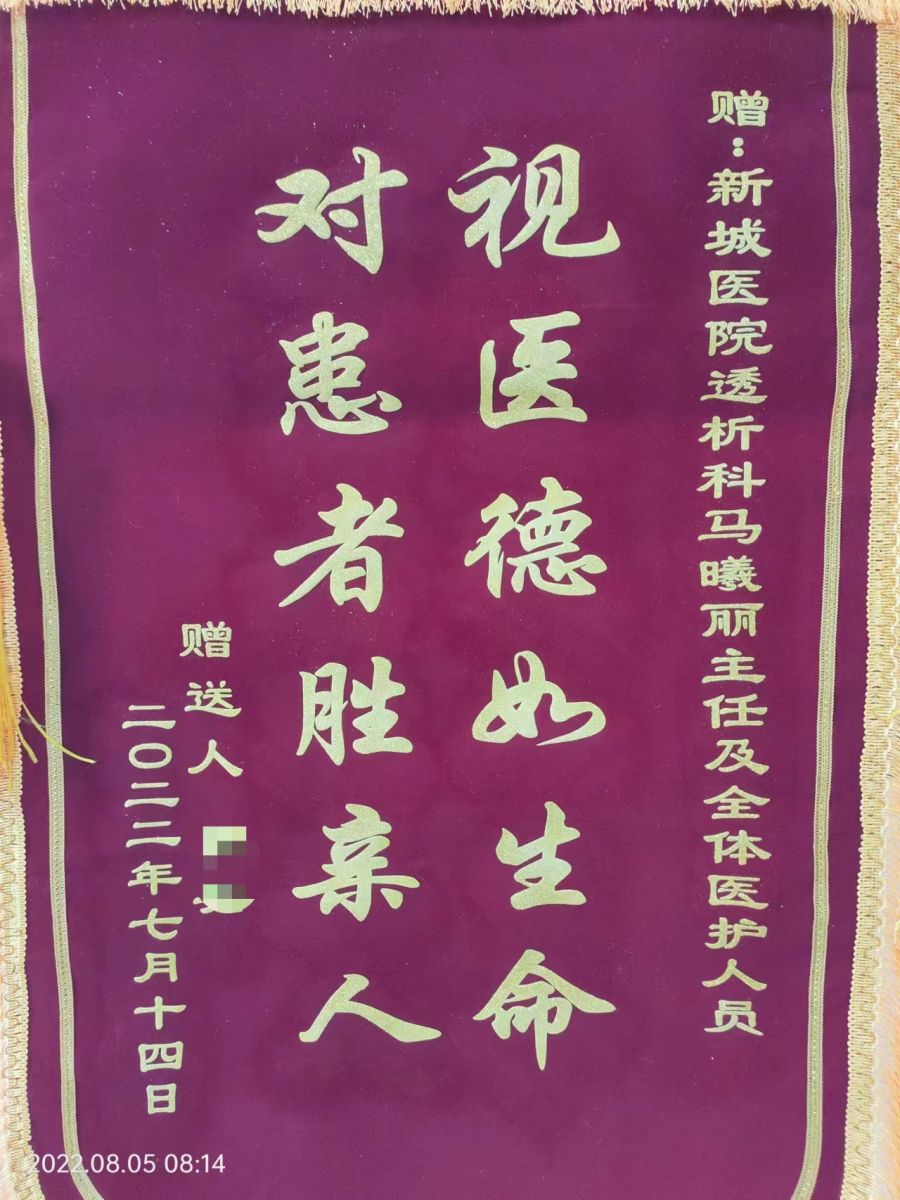 赠：新城医院透析科马曦丽主任及全体医护人员
视医德如生命
对患者胜亲人
赠送人
二〇二二年七月十四日
2022.08.05 08:14